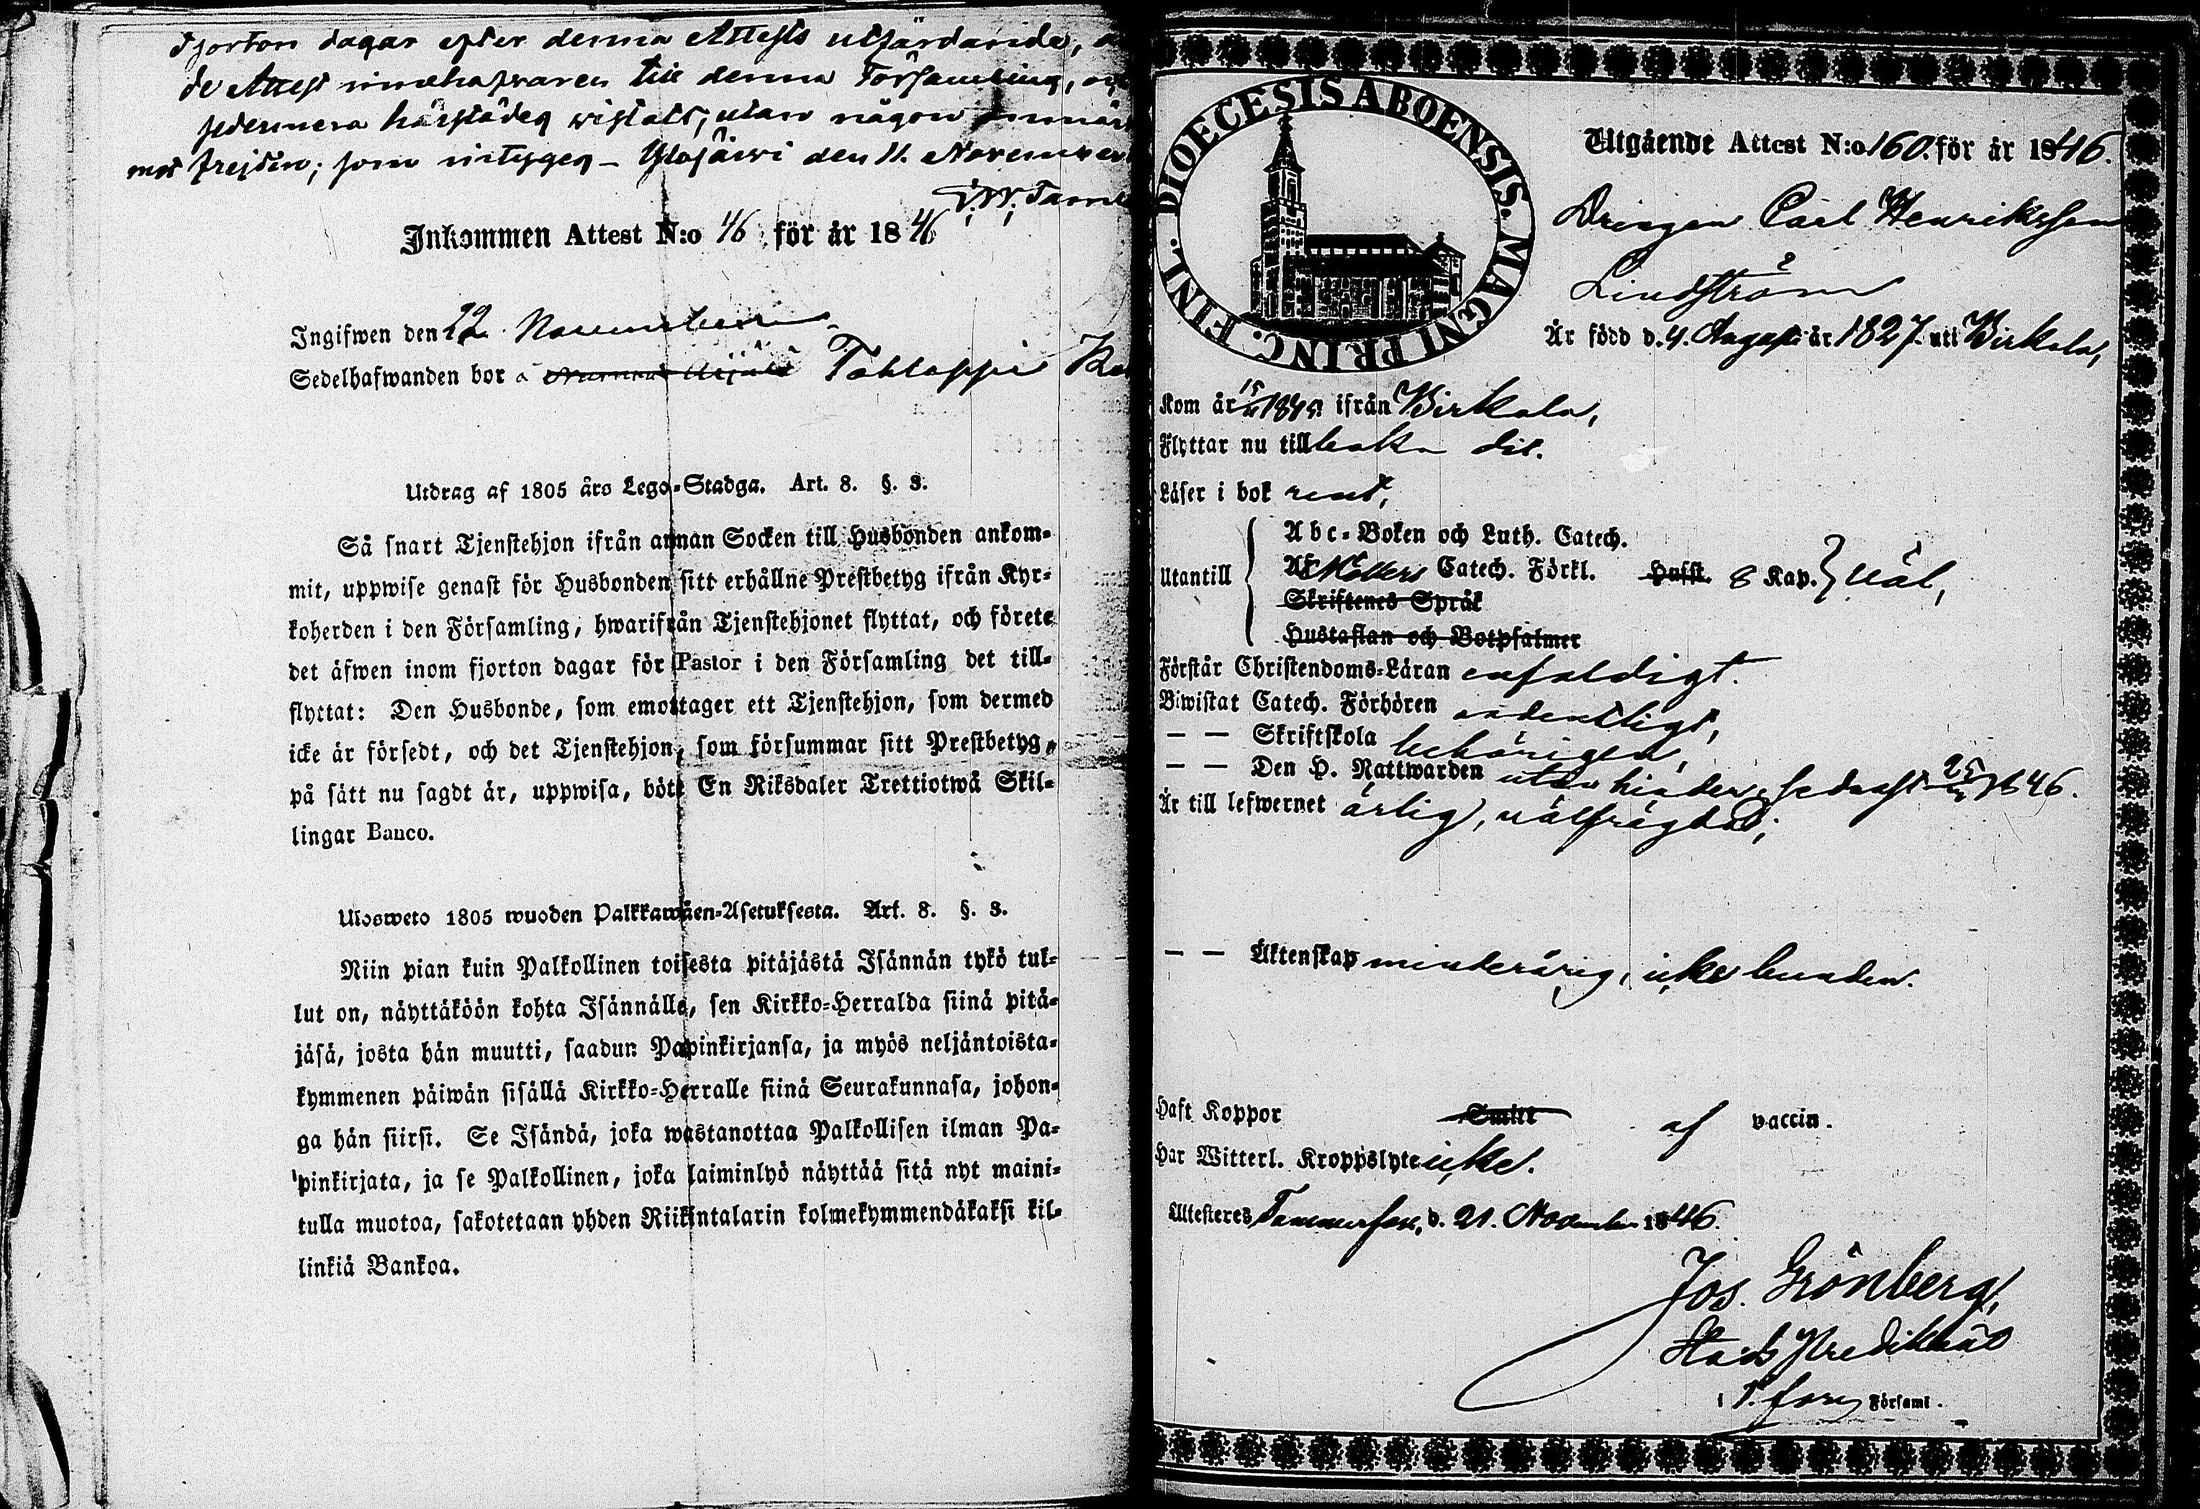 Fjorton dagar efter denna Attests utfärdande,
de Attest innehafvaren till denna Församling,
sedermera härstädes vistats, utan någon anmär
mot frejden; som intygas – Ylojärwi den 11. November
Inkommen Attest N:o 46 för år 1846
Ingifwen den 22 November
Sedelhafwanden bor å Tahlappi
Utdrag af 1805 års Lego-Stadga. Art. 8. §. 3.
Så snart Tjenstehjon ifrån annan Socken till Husbonden ankom-
mit, uppwise genast för Husbonden sitt erhållne Prestbetyg ifrån Kyr-
koherden i den Församling, hwarifrån Tjenstehjonet flyttat, och förete
det äfwen inom fjorton dagar för Pastor i den Församling det till-
flyttat: Den Husbonde, som emottager ett Tjenstehjon, som dermed
icke är försedt, och det Tjenstehjon, som försummar sitt Prestbetyg,
på sätt nu sagdt är, uppwisa, böte En Riksdaler Trettiotwå Skil-
lingar Banco.
Ulosweto 1805 wuoden Palkkawäen-Asetuksesta. Art. 8. §. 3.
Niin pian kuin Palkollinen toisesta pitäjästä Isännän tykö tul-
lut on, näyttäköön kohta Isännälle, sen Kirkko-Herralda siinä pitä-
jäsä, josta hän muutti, saadun Papinkirjansa, ja myös neljäntoista-
kymmenen päiwän sisällä Kirkko-Herralle siinä Seurakunnasa, johon-
ga hän siirsi. Se Isändä, joka wastanottaa Palkollisen ilman Pa-
pinkirjata, ja se Palkollinen, joka laiminlyö näyttää sitä nyt maini-
tulla muotoa, sakotetaan yhden Riikintalarin kolmekymmendäkaksi kil-
linkiä Bankoa.
DIOECESIS ABOENSIS. MAGNI PRINC. FINL.
Utgående Attest N:o 160. för år 1846.
Drängen Carl Henriksson
Lindström
Är född d. 4. Augusti år 1827. uti Birkala,
Kom år 15/11 1845 ifrån Birkala,
Flyttar nu tillbaka dit.
Läser i bok rent,
Utantill
Abc-Boken och Luth. Catech.
Af Möllers Catech. Förkl. Husst. 8 Kap. väl,
Skriftenes Språk
Hustaflan och Botpsalmer
Förstår Christendoms-Läran enfaldigt.
Biwistat Catech. Förhören ordentligt,
— — Skriftskola behörigen,
— — Den H. Nattwarden utan hinder, sednast 25/10 1846.
Är till lefwernet ärlig, välfrägdad;
— — Äktenskap minderårig, icke bunden.
Haft Koppor Smitt af vaccin.
Har Witterl. Kroppslyte icke.
Attesteres Tammerfors, d. 21. November 1846.
Jos. Grönberg,
Stads Predikant
i T.fors Församl.